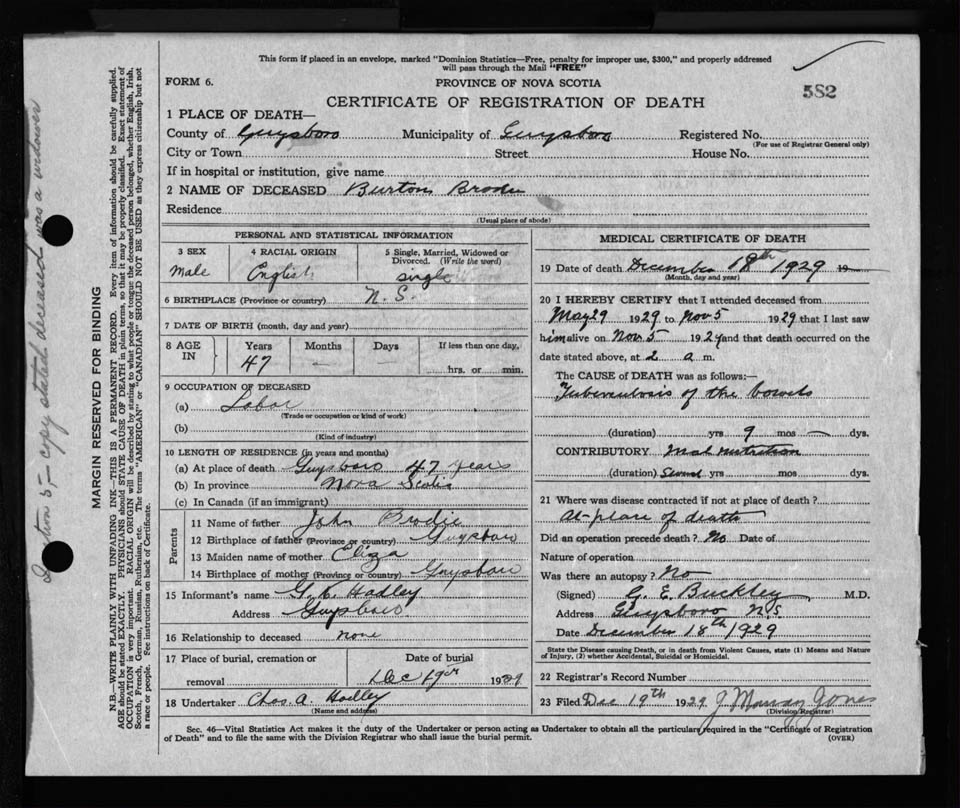 This form if placed in an envelope, marked "Dominion Statistics—Free, penalty for improper use, $300," and properly addressed
will pass through the Mail "FREE"
FORM 6.
PROVINCE OF NOVA SCOTIA
582
CERTIFICATE OF REGISTRATION OF DEATH
1 PLACE OF DEATH—
County of Guysboro Municipality of Guysboro Registered No.
(For use of Registrar General only)
City or Town Street House No.
If in hospital or institution, give name
2 NAME OF DECEASED Burton Brodie
Residence
(Usual place of abode)
PERSONAL AND STATISTICAL INFORMATION
3 SEX 4 RACIAL ORIGIN 5 Single, Married, Widowed or
Divorced. (Write the word)
Male English single
6 BIRTHPLACE (Province or country) N. S.
7 DATE OF BIRTH (month, day and year)
8 AGE IN Years Months Days If less than one day,
47 — hrs. or min.
9 OCCUPATION OF DECEASED
(a) Labor
(Trade or occupation or kind of work)
(b)
(Kind of industry)
10 LENGTH OF RESIDENCE (in years and months)
(a) At place of death Guysboro 47 years
(b) In province Nova Scotia
(c) In Canada (if an immigrant)
Parents
11 Name of father John Brodie
12 Birthplace of father (Province or country) Guysboro
13 Maiden name of mother Eliza
14 Birthplace of mother (Province or country) Guysboro
15 Informant's name G. C. Hadley
Address Guysboro
16 Relationship to deceased none
17 Place of burial, cremation or Date of burial
removal Dec 19th 1929
18 Undertaker Chas. A. Hadley
(Name and address)
MEDICAL CERTIFICATE OF DEATH
19 Date of death December 18th 1929 19
(Month, day and year)
20 I HEREBY CERTIFY that I attended deceased from
May 29 1929 to Nov 5 1929 that I last saw
him alive on Nov. 5 1929 and that death occurred on the
date stated above, at 2 a m.
The CAUSE of DEATH was as follows:—
Tuberculosis of the bowels
(duration) yrs 9 mos — dys.
CONTRIBUTORY Mal nutrition
(duration) Several yrs. mos. dys.
21 Where was disease contracted if not at place of death?
At place of death
Did an operation precede death? No Date of
Nature of operation
Was there an autopsy? No
(Signed) G. E. Buckley M.D.
Address Guysboro N.S.
Date December 18th 1929
State the Disease Causing Death, or in death from Violent Causes, state (1) Means and Nature
of Injury, (2) whether Accidental, Suicidal or Homicidal.
22 Registrar's Record Number
23 Filed Dec 19th 1929 J Jones
(Division Registrar)
Sec. 46—Vital Statistics Act makes it the duty of the Undertaker or person acting as Undertaker to obtain all the particulars required in the "Certificate of Registration
of Death" and to file the same with the Division Registrar who shall issue the burial permit.
(OVER)
MARGIN RESERVED FOR BINDING
N.B.—WRITE PLAINLY WITH UNFADING INK—THIS IS A PERMANENT RECORD. Every item of information should be carefully supplied.
AGE should be stated EXACTLY. PHYSICIANS should STATE CAUSE OF DEATH in plain terms, so that it may be properly classified. Exact statement of
OCCUPATION is very important. RACIAL ORIGIN will be described by stating to what people or tongue the deceased person belonged, whether English, Irish,
Scotch, French, German, Russian, Ruthenian, etc. The terms "AMERICAN" or "CANADIAN" SHOULD NOT BE USED as they express citizenship but not
a race or people. See instructions on back of Certificate.
5— copy stated deceased was a widower